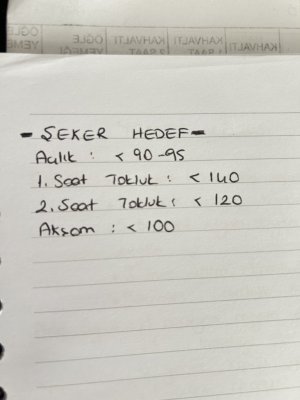 - ŞEKER HEDEF -
Açlık : < 90-95
1. Saat Tokluk : < 140
2. Saat Tokluk : < 120
Akşam : < 100